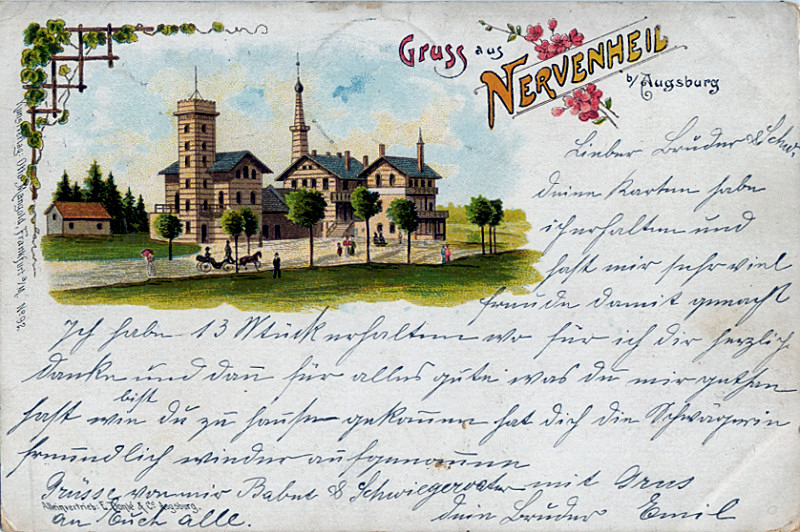 Gruss aus
NERVENHEIL
b/ Augsburg
Kunstverlag Otto Mangold, Frankfurt a/M. No 92.
Lieber Bruder & Schw.
deine Karten habe
ich erhalten und
hast mir sehr viel
freude damit gemacht
Ich habe 13 Stück erhalten wo für ich dir herzlich
danke und dan für alles gute was du mir gethan
hast wie bist du zu hause gekommen hat dich die Schwägerin
freundlich wieder aufgenommen
Grüsse von mir Babet & Schwiegervater mit Grus
Alleinvertrieb: & Co Augsburg.
an Euch alle. dein Bruder Emil